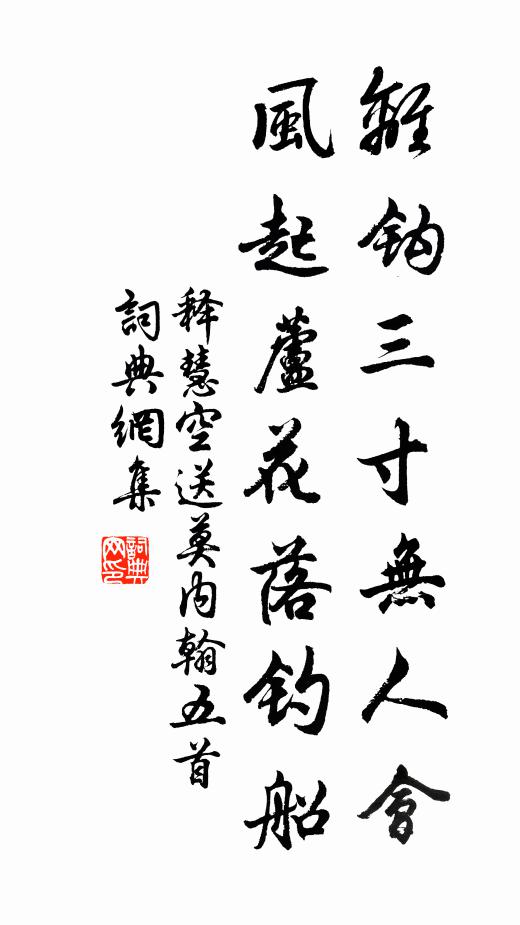 離鈎三寸無人會
風起蘆花落釣船
释慧空送莫內翰五首
詞典網集
詞典网印